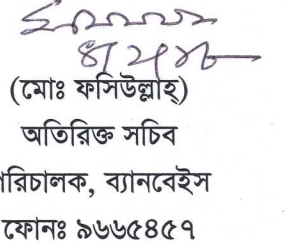 (মোঃ ফসিউল্লাহ্)
অতিরিক্ত সচিব
রিচালক, ব্যানবেইস
ফোনঃ ৯৬৬৫৪৫৭